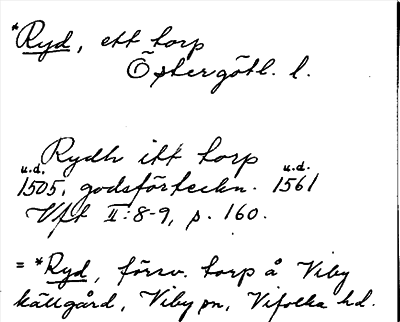 *Ryd, ett torp
Östergötl. l.
Rydh itt torp
u.d. u.d.
1505, godsförteckn. 1561
Vft II:8-9, p. 160.
= *Ryd, försv. torp å Viby
källgård, Viby sn, Vifolka hd.